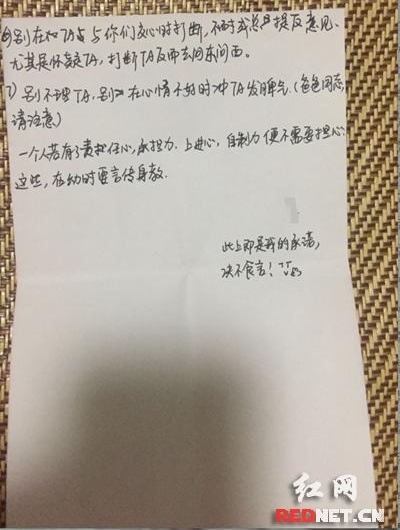 6)别在和TA或与你们交心时打断,不时或总是提反意见、
尤其是怀疑TA,打断TA反而去问东问西。
7)别不理TA,别在心情不好时冲TA发脾气.(爸爸同志,
请注意)
一个人若有了责任心,承担力,上进心,自制力便不需要担心,
这些,在幼时要言传身教.
此上即是我的承诺,
决不食言!
红网
REDNET.CN